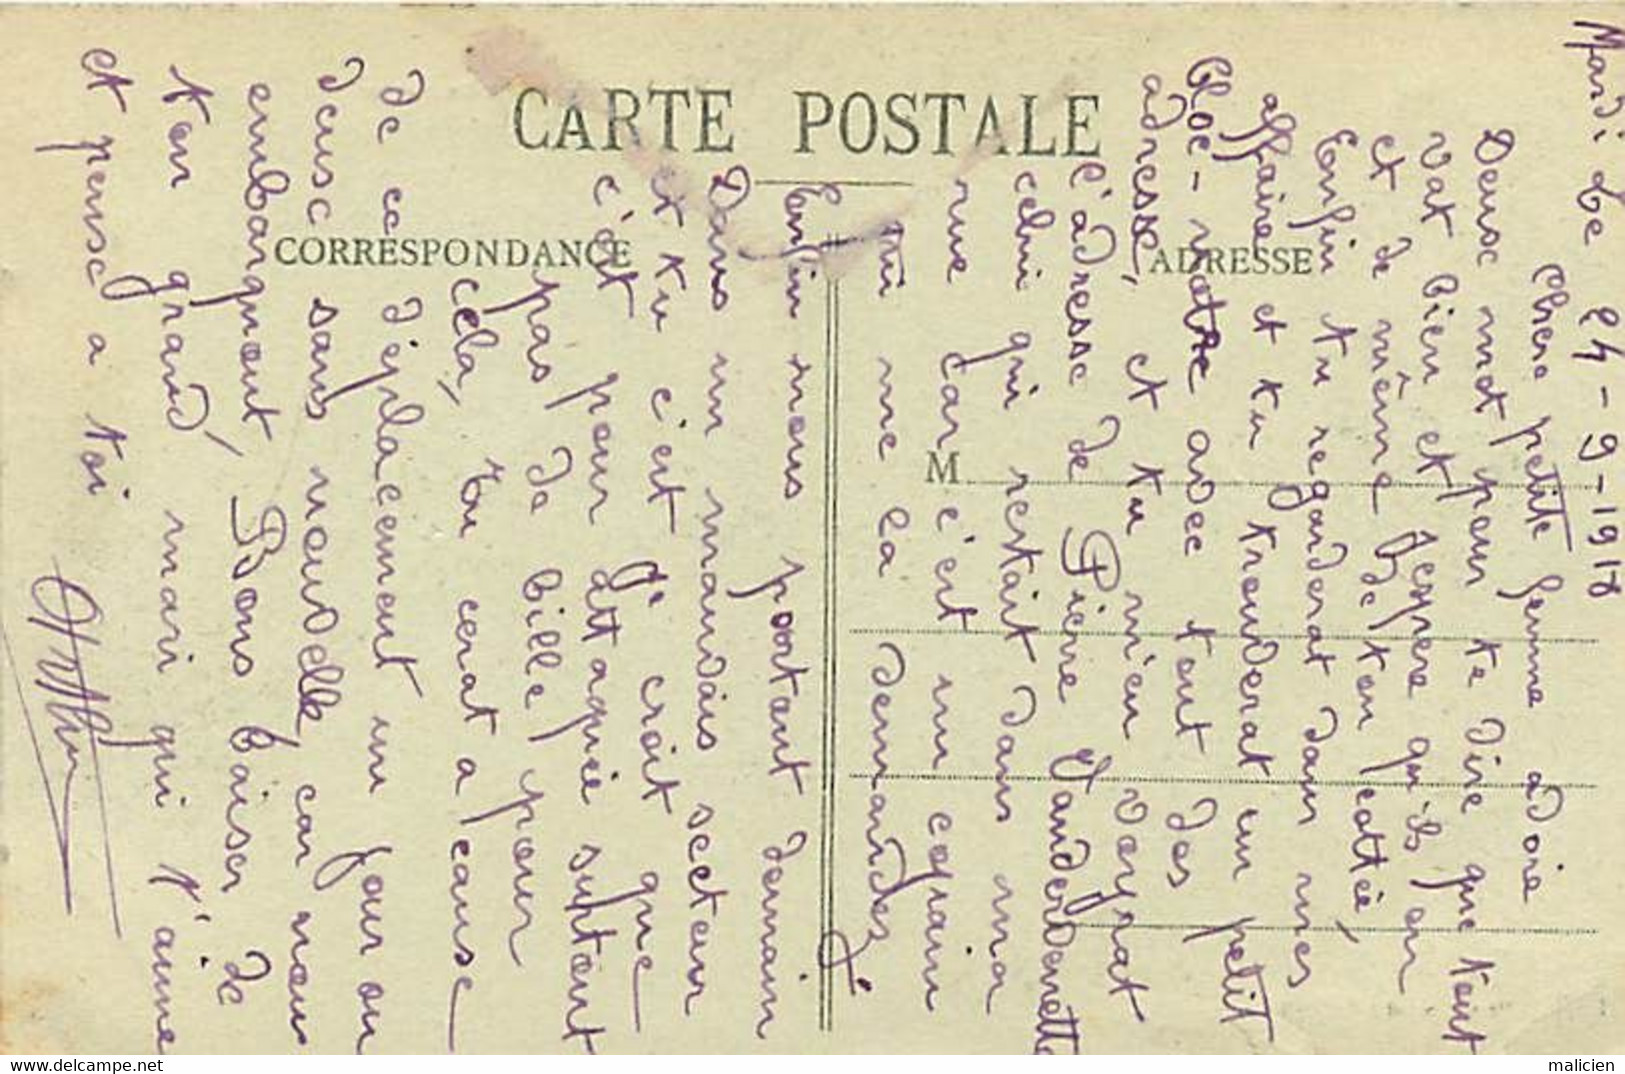 CARTE POSTALE
CORRESPONDANCE
ADRESSE
M
Mardi Le 24-9-1918
Chere petite femme adoré
Deux mot pour te dire que tout
vat bien et J'espere qu'ils on
et de même de ton cottée,
Enfin tu regarderat dans mes
affaire et tu trouverat un petit
Bloc-notre avec tout des
adresse, et tu m'en voyrat
l'adresse de Pierre Vanderdonette
celui qui restait dans ma
rue car c'est un copain
qui me la demandez
Enfin nous portant demain
Dans un mauvais secteur
et tu c'est Je croit que
c'est pour attaquée surtout
pas de bille pour
cela, ton cerat a cause
de ce déplacement un jour ou
deux sans nouvelle, car nous
embarquont, Bons baiser de
ton grand, mari qui t'aime
et pense a toi
Arthur
malicien